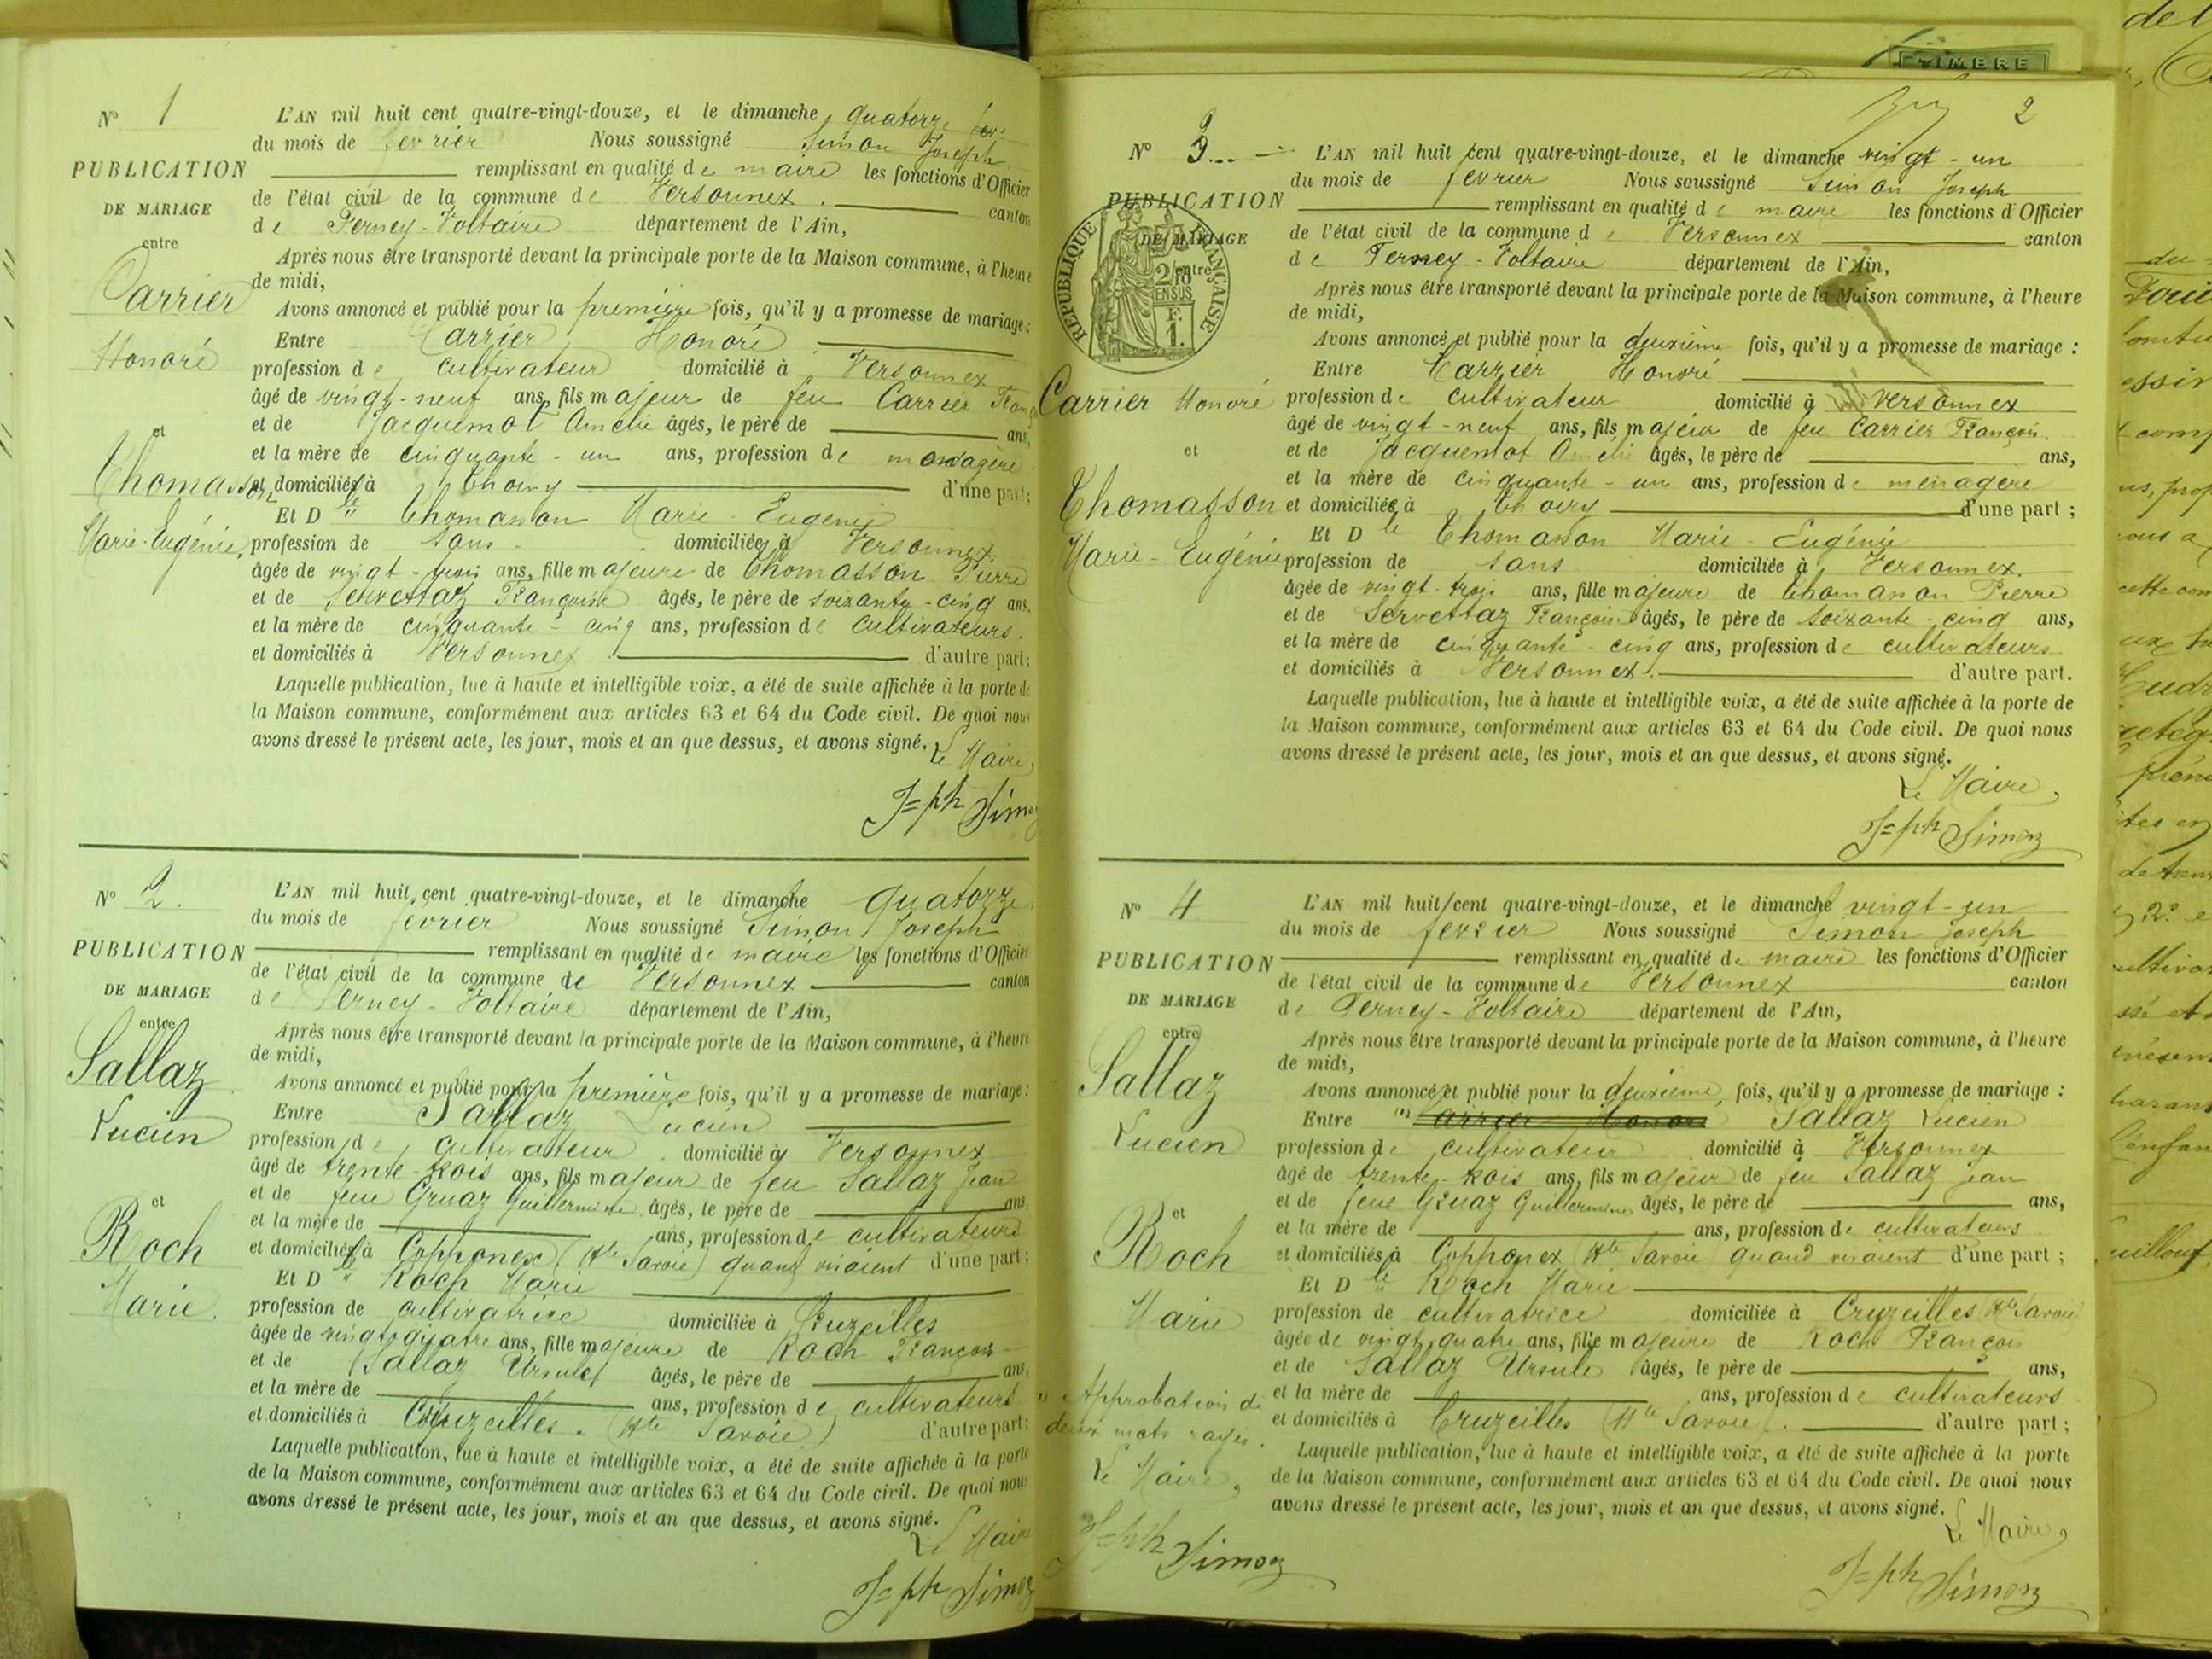 N° 1
PUBLICATION
DE MARIAGE
entre
Carrier
Honoré
et
Thomasson
Marie-Eugénie.
L'AN mil huit cent quatre-vingt-douze, et le dimanche quatorze
du mois de février Nous soussigné Simon Joseph
remplissant en qualité de maire les fonctions d'Officier
de l'état civil de la commune de Versonnex. canton
de Ferney-Voltaire département de l'Ain,
Après nous être transporté devant la principale porte de la Maison commune, à l'heure
de midi,
Avons annoncé et publié pour la première fois, qu'il y a promesse de mariage:
Entre Carrier Honoré
profession de cultivateur domicilié à Versonnex
âgé de vingt-neuf ans, fils majeur de feu Carrier
et de Jacquemot Amélie âgés, le père de ans,
et la mère de cinquante-un ans, profession de
et domiciliés à Thoiry d'une part;
Et Dlle Thomasson Marie-Eugénie
profession de sans domiciliée à Versonnex
âgée de vingt-trois ans, fille majeure de Thomasson Pierre
et de Servettaz Françoise âgés, le père de soixante-cinq ans,
et la mère de cinquante-cinq ans, profession de cultivateurs.
et domiciliés à Versonnex d'autre part:
Laquelle publication, lue à haute et intelligible voix, a été de suite affichée à la porte de
la Maison commune, conformément aux articles 63 et 64 du Code civil. De quoi nous
avons dressé le présent acte, les jour, mois et an que dessus, et avons signé.
Le Maire,
Jph Simon
N° 2.
PUBLICATION
DE MARIAGE
entre
Sallaz
Lucien
et
Roch
Marie.
L'AN mil huit cent quatre-vingt-douze, et le dimanche quatorze
du mois de février Nous soussigné Simon Joseph
remplissant en qualité de maire les fonctions d'Officier
de l'état civil de la commune de Versonnex canton
de Ferney-Voltaire département de l'Ain,
Après nous être transporté devant la principale porte de la Maison commune, à l'heure
de midi,
Avons annoncé et publié pour la première fois, qu'il y a promesse de mariage:
Entre Sallaz Lucien
profession de cultivateur domicilié à Versonnex
âgé de trente-trois ans, fils majeur de feu Sallaz Jean
et de feue Gruaz Guillermine âgés, le père de ans
et la mère de ans, profession de cultivateurs
et domiciliés à Copponex (Hte Savoie) quand vivaient d'une part:
Et Dlle Roch Marie
profession de cultivatrice domiciliée à Cruzeilles
âgée de vingt-quatre ans, fille majeure de Roch François
et de Sallaz Ursule âgés, le père de ans,
et la mère de ans, profession de cultivateurs
et domiciliés à Cruzeilles. (Hte Savoie) d'autre part:
Laquelle publication, lue à haute et intelligible voix, a été de suite affichée à la porte
de la Maison commune, conformément aux articles 63 et 64 du Code civil. De quoi nous
avons dressé le présent acte, les jour, mois et an que dessus, et avons signé.
Le Maire
Jph Simon
TIMBRE
2
N° 3
PUBLICATION
DE MARIAGE
entre
RÉPUBLIQUE FRANÇAISE
Carrier Honoré
et
Thomasson
Marie-Eugénie
L'AN mil huit cent quatre-vingt-douze, et le dimanche vingt-un
du mois de février Nous soussigné Simon Joseph
remplissant en qualité de maire les fonctions d'Officier
de l'état civil de la commune de Versonnex canton
de Ferney-Voltaire département de l'Ain,
Après nous être transporté devant la principale porte de la Maison commune, à l'heure
de midi,
Avons annoncé et publié pour la deuxième fois, qu'il y a promesse de mariage:
Entre Carrier Honoré
profession de cultivateur domicilié à Versonnex
âgé de vingt-neuf ans, fils majeur de feu Carrier François.
et de Jacquemot Amélie âgés, le père de ans,
et la mère de cinquante-un ans, profession de ménagère
et domiciliés à Thoiry d'une part;
Et Dlle Thomasson Marie-Eugénie
profession de sans domiciliée à Versonnex.
âgée de vingt-trois ans, fille majeure de Thomasson Pierre
et de Servettaz Françoise âgés, le père de soixante-cinq ans,
et la mère de cinquante-cinq ans, profession de cultivateurs
et domiciliés à Versonnex. d'autre part.
Laquelle publication, lue à haute et intelligible voix, a été de suite affichée à la porte de
la Maison commune, conformément aux articles 63 et 64 du Code civil. De quoi nous
avons dressé le présent acte, les jour, mois et an que dessus, et avons signé.
Le Maire,
Jph Simon
N° 4
PUBLICATION
DE MARIAGE
entre
Sallaz
Lucien
et
Roch
Marie
Approbation de
deux mots rayés.
Le Maire,
Jph Simon
L'AN mil huit cent quatre-vingt-douze, et le dimanche vingt-un
du mois de février Nous soussigné Simon Joseph
remplissant en qualité de maire les fonctions d'Officier
de l'état civil de la commune de Versonnex canton
de Ferney-Voltaire département de l'Ain,
Après nous être transporté devant la principale porte de la Maison commune, à l'heure
de midi,
Avons annoncé et publié pour la deuxième fois, qu'il y a promesse de mariage:
Entre (1) Carrier Honoré Sallaz Lucien
profession de cultivateur domicilié à Versonnex
âgé de trente-trois ans, fils majeur de feu Sallaz Jean
et de feue Gruaz Guillermine âgés, le père de ans,
et la mère de ans, profession de cultivateurs
et domiciliés à Copponex (Hte Savoie) quand vivaient d'une part;
Et Dlle Roch Marie
profession de cultivatrice domiciliée à Cruzeilles (Hte Savoie)
âgée de vingt-quatre ans, fille majeure de Roch François
et de Sallaz Ursule âgés, le père de ans,
et la mère de ans, profession de cultivateurs
et domiciliés à Cruzeilles (Hte Savoie). d'autre part;
Laquelle publication, lue à haute et intelligible voix, a été de suite affichée à la porte
de la Maison commune, conformément aux articles 63 et 64 du Code civil. De quoi nous
avons dressé le présent acte, les jour, mois et an que dessus, et avons signé.
Le Maire,
Jph Simon